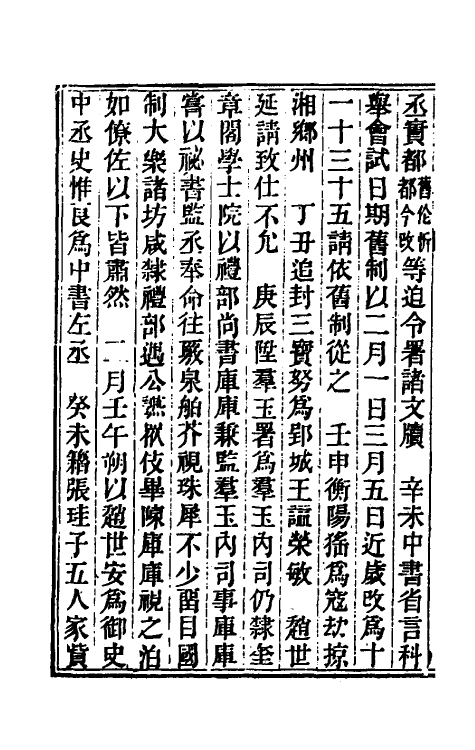 丞實都舊倫忻都今改等迫令署諸文牘　辛未中書省言科
舉會試日期舊制以二月一日三月五日近歲改爲十
一十三十五請依舊制從之　壬申衡陽猺爲寇劫掠
湘鄉州　丁丑追封三寶努爲郢城王謚榮敏　趙世
延請致仕不允　庚辰陞羣玉署爲羣玉內司仍隸奎
章閣學士院以禮部尚書庫庫兼監羣玉內司事庫庫
嘗以祕書監丞奉命往覈泉舶芥視珠犀不少留目國
制大樂諸坊咸隸禮部遇公讌衆伎畢陳庫庫視之泊
如僚佐以下皆肅然　二月壬午朔以趙世安爲御史
中丞史惟良爲中書左丞　癸未籍張珪子五人家貲